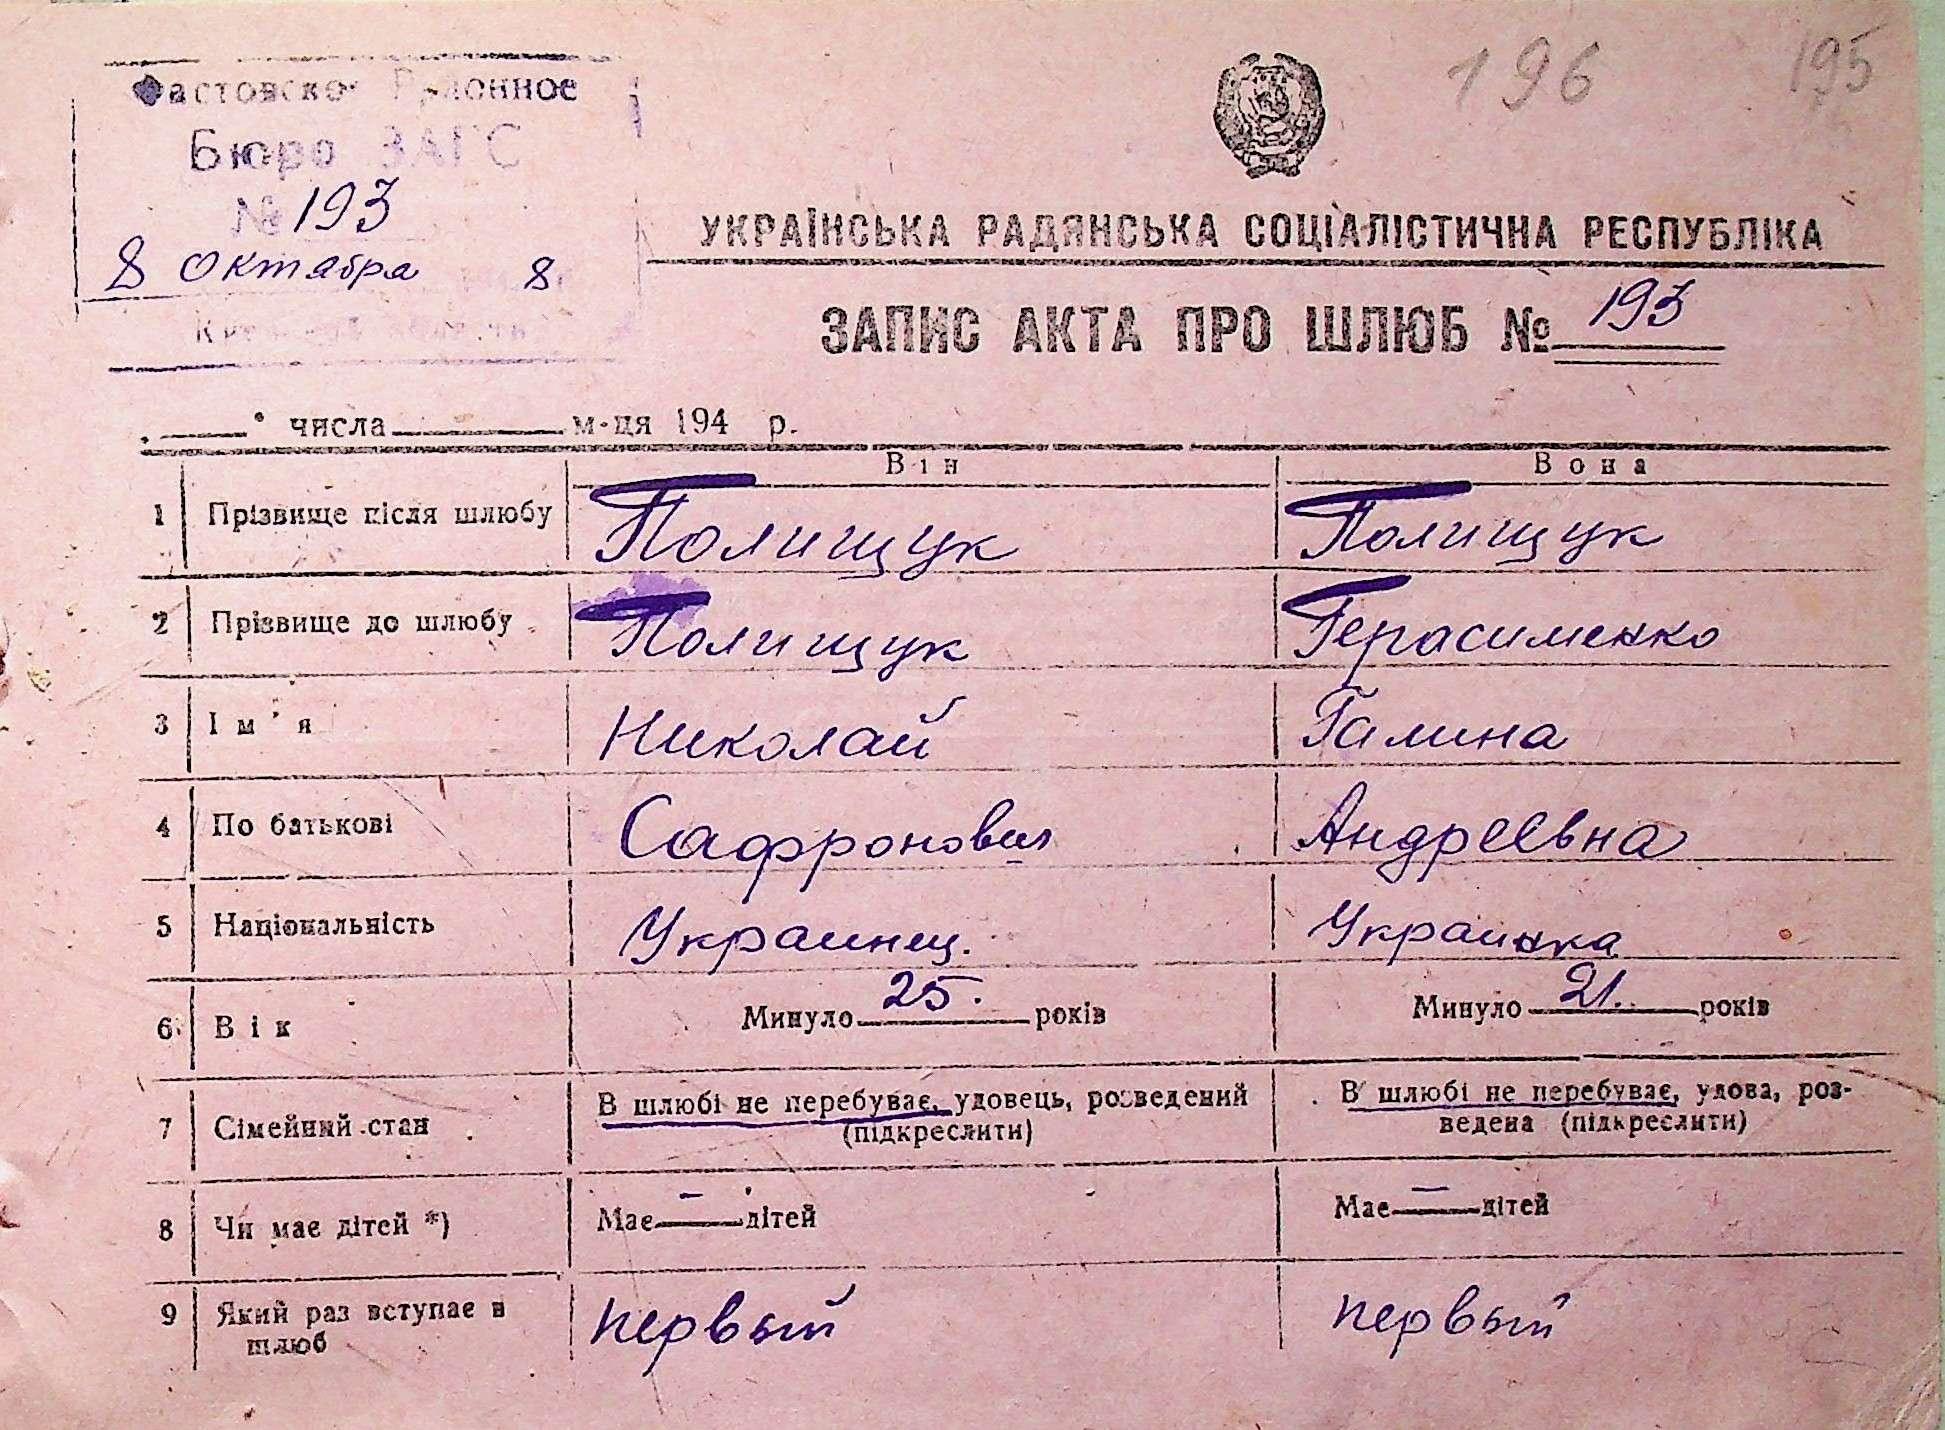 196 195
Фастовское Районное
Бюро ЗАГС
№ 193
8 октября 8
УКРАЇНСЬКА РАДЯНСЬКА СОЦІАЛІСТИЧНА РЕСПУБЛІКА
ЗАПИС АКТА ПРО ШЛЮБ № 193
числа м-ця 194 р.
Він Вона
1 Прізвище після шлюбу Полищук Полищук
2 Прізвище до шлюбу Полищук Герасименко
3 Ім'я Николай Галина
4 По батькові Сафронович Андреевна
5 Національність Украинец. Украинка
6 Вік Минуло 25. років Минуло 21. років
7 Сімейний стан В шлюбі не перебуває, удовець, розведений (підкреслити) В шлюбі не перебуває, удова, роз-
ведена (підкреслити)
8 Чи має дітей *) Має — дітей Має — дітей
9 Який раз вступає в шлюб первый первый